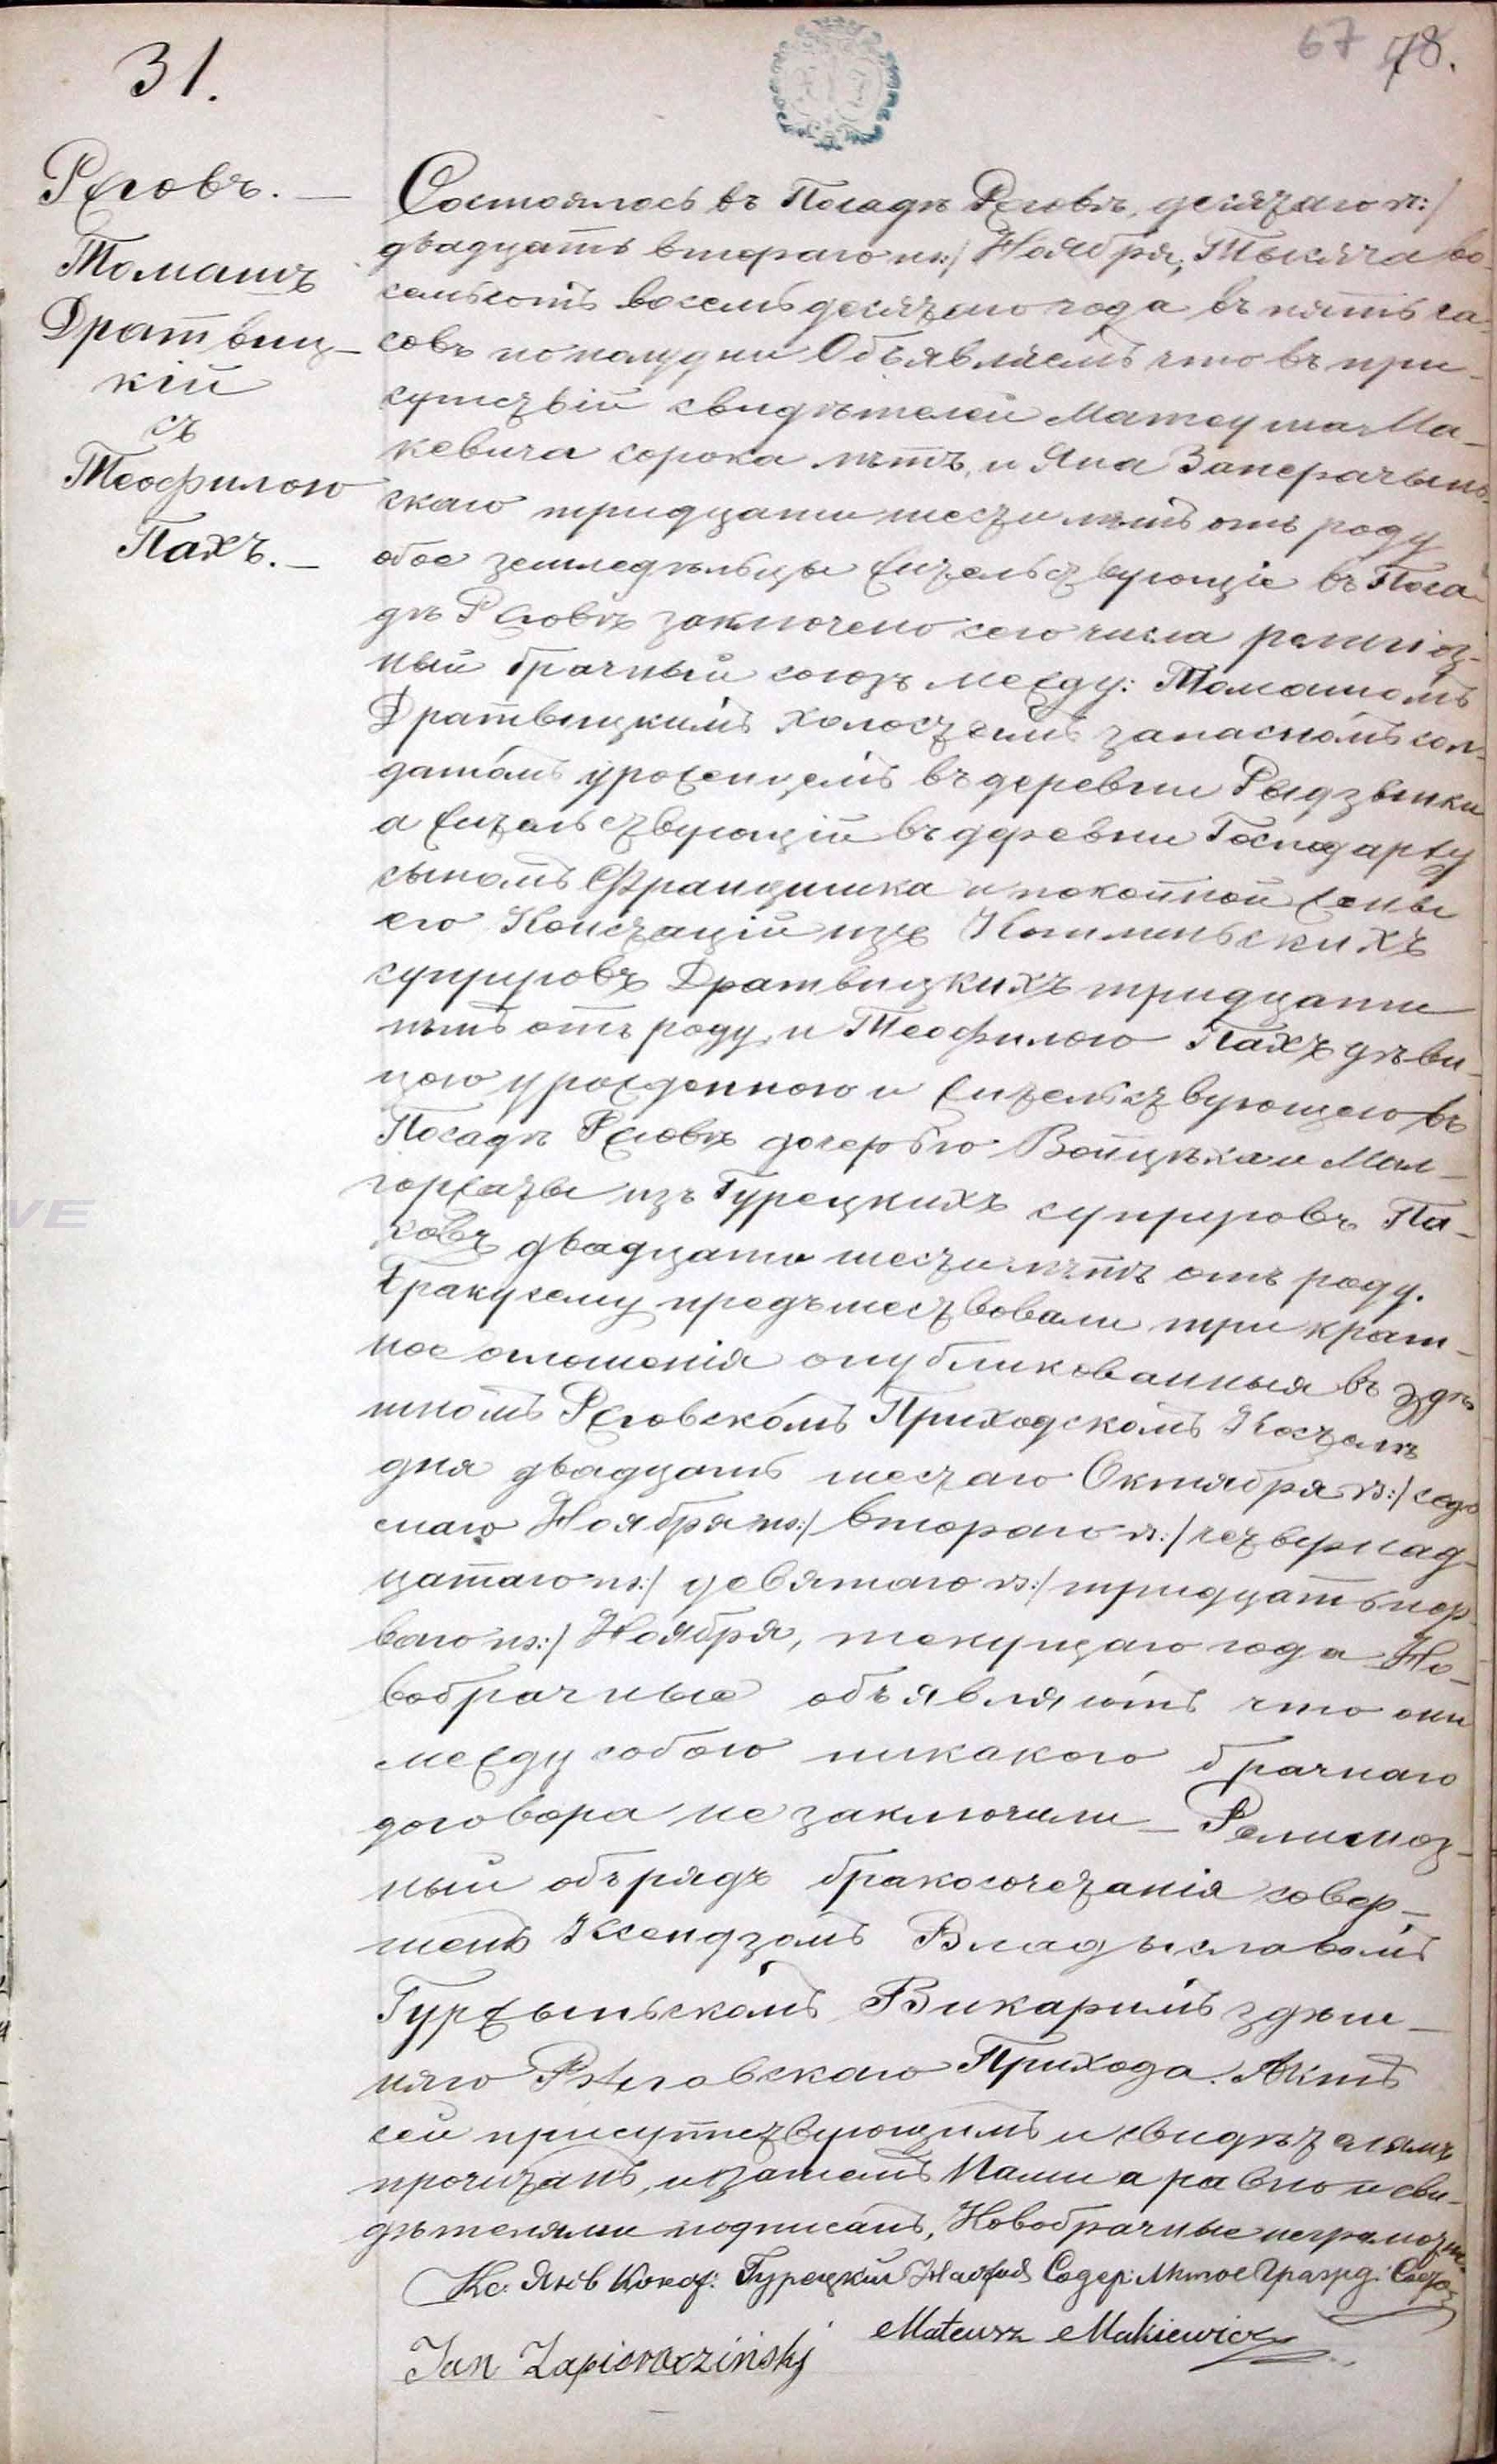 31.
67 78.
Рговъ. —
Томашъ
Дратвиц-
кій
съ
Теофилою
Пахъ. —
Состоялось въ Посадѣ Рговѣ, десятаго п:/
двадцать втораго н:/ Ноября, Тысяча во-
семьсотъ восемьдесятаго года въ пять ча-
совъ пополудни Объявляемъ что въ при-
сутствій свидѣтелей Матеуша Ма-
кевича сорока лѣтъ, и Яна Заперачынь-
скаго тридцати шести лѣтъ отъ роду
обое земледѣльцы жительствующіе въ Поса-
дѣ Рговѣ заключено сего числа религіоз-
ный брачный союзъ между: Томашомъ
Дратвицкимъ холостымъ запаснымъ сол-
датомъ уроженцемъ въ деревни Рыдзвинки
а жительствующій въ деревни Господаржу
сыномъ Францишка и покойной жены
его Констаціи изъ Коминьскихъ
супруговъ Дратвицкихъ тридцати
лѣтъ отъ роду, и Теофилою Пахъ дѣви-
цою урожденною и жительствующею въ
Посадѣ Рговѣ дочерью Войцѣха и Мал-
горжаты изъ Гурецкихъ супруговъ Па-
ховъ двадцати шести лѣтъ отъ роду.
Браку сему предъшествовали три крат-
ное оглошенія опубликованныя въ здѣ
шномъ Рговскомъ Приходскомъ Костелѣ
дня двадцать шестаго Октября п:/ седь
маго Ноября н:/ втораго п:/ четвернад-
цатаго н:/ девятаго п:/ тридцать пер
ваго н:/ Ноября, текущаго года Но-
вобрачные объявляютъ что они
между собою никакого брачнаго
договора не заключили — Религіоз-
ный обърядъ бракосочетанія совер-
шенъ Ксендзомъ Владыславомъ
Гуржыньскомъ Викаримъ здѣш-
няго Рговскаго Прихода. Актъ
сей присутствующимъ и свидѣтелямъ
прочитанъ, и затемъ Нами а равно и сви-
дѣтелями подписанъ, Новобрачные неграмотны
Кс. Яков Гурецкий Содер: Актое Гражд: Сост
Mateusz Makiewicz
Jan Zapieraczinski